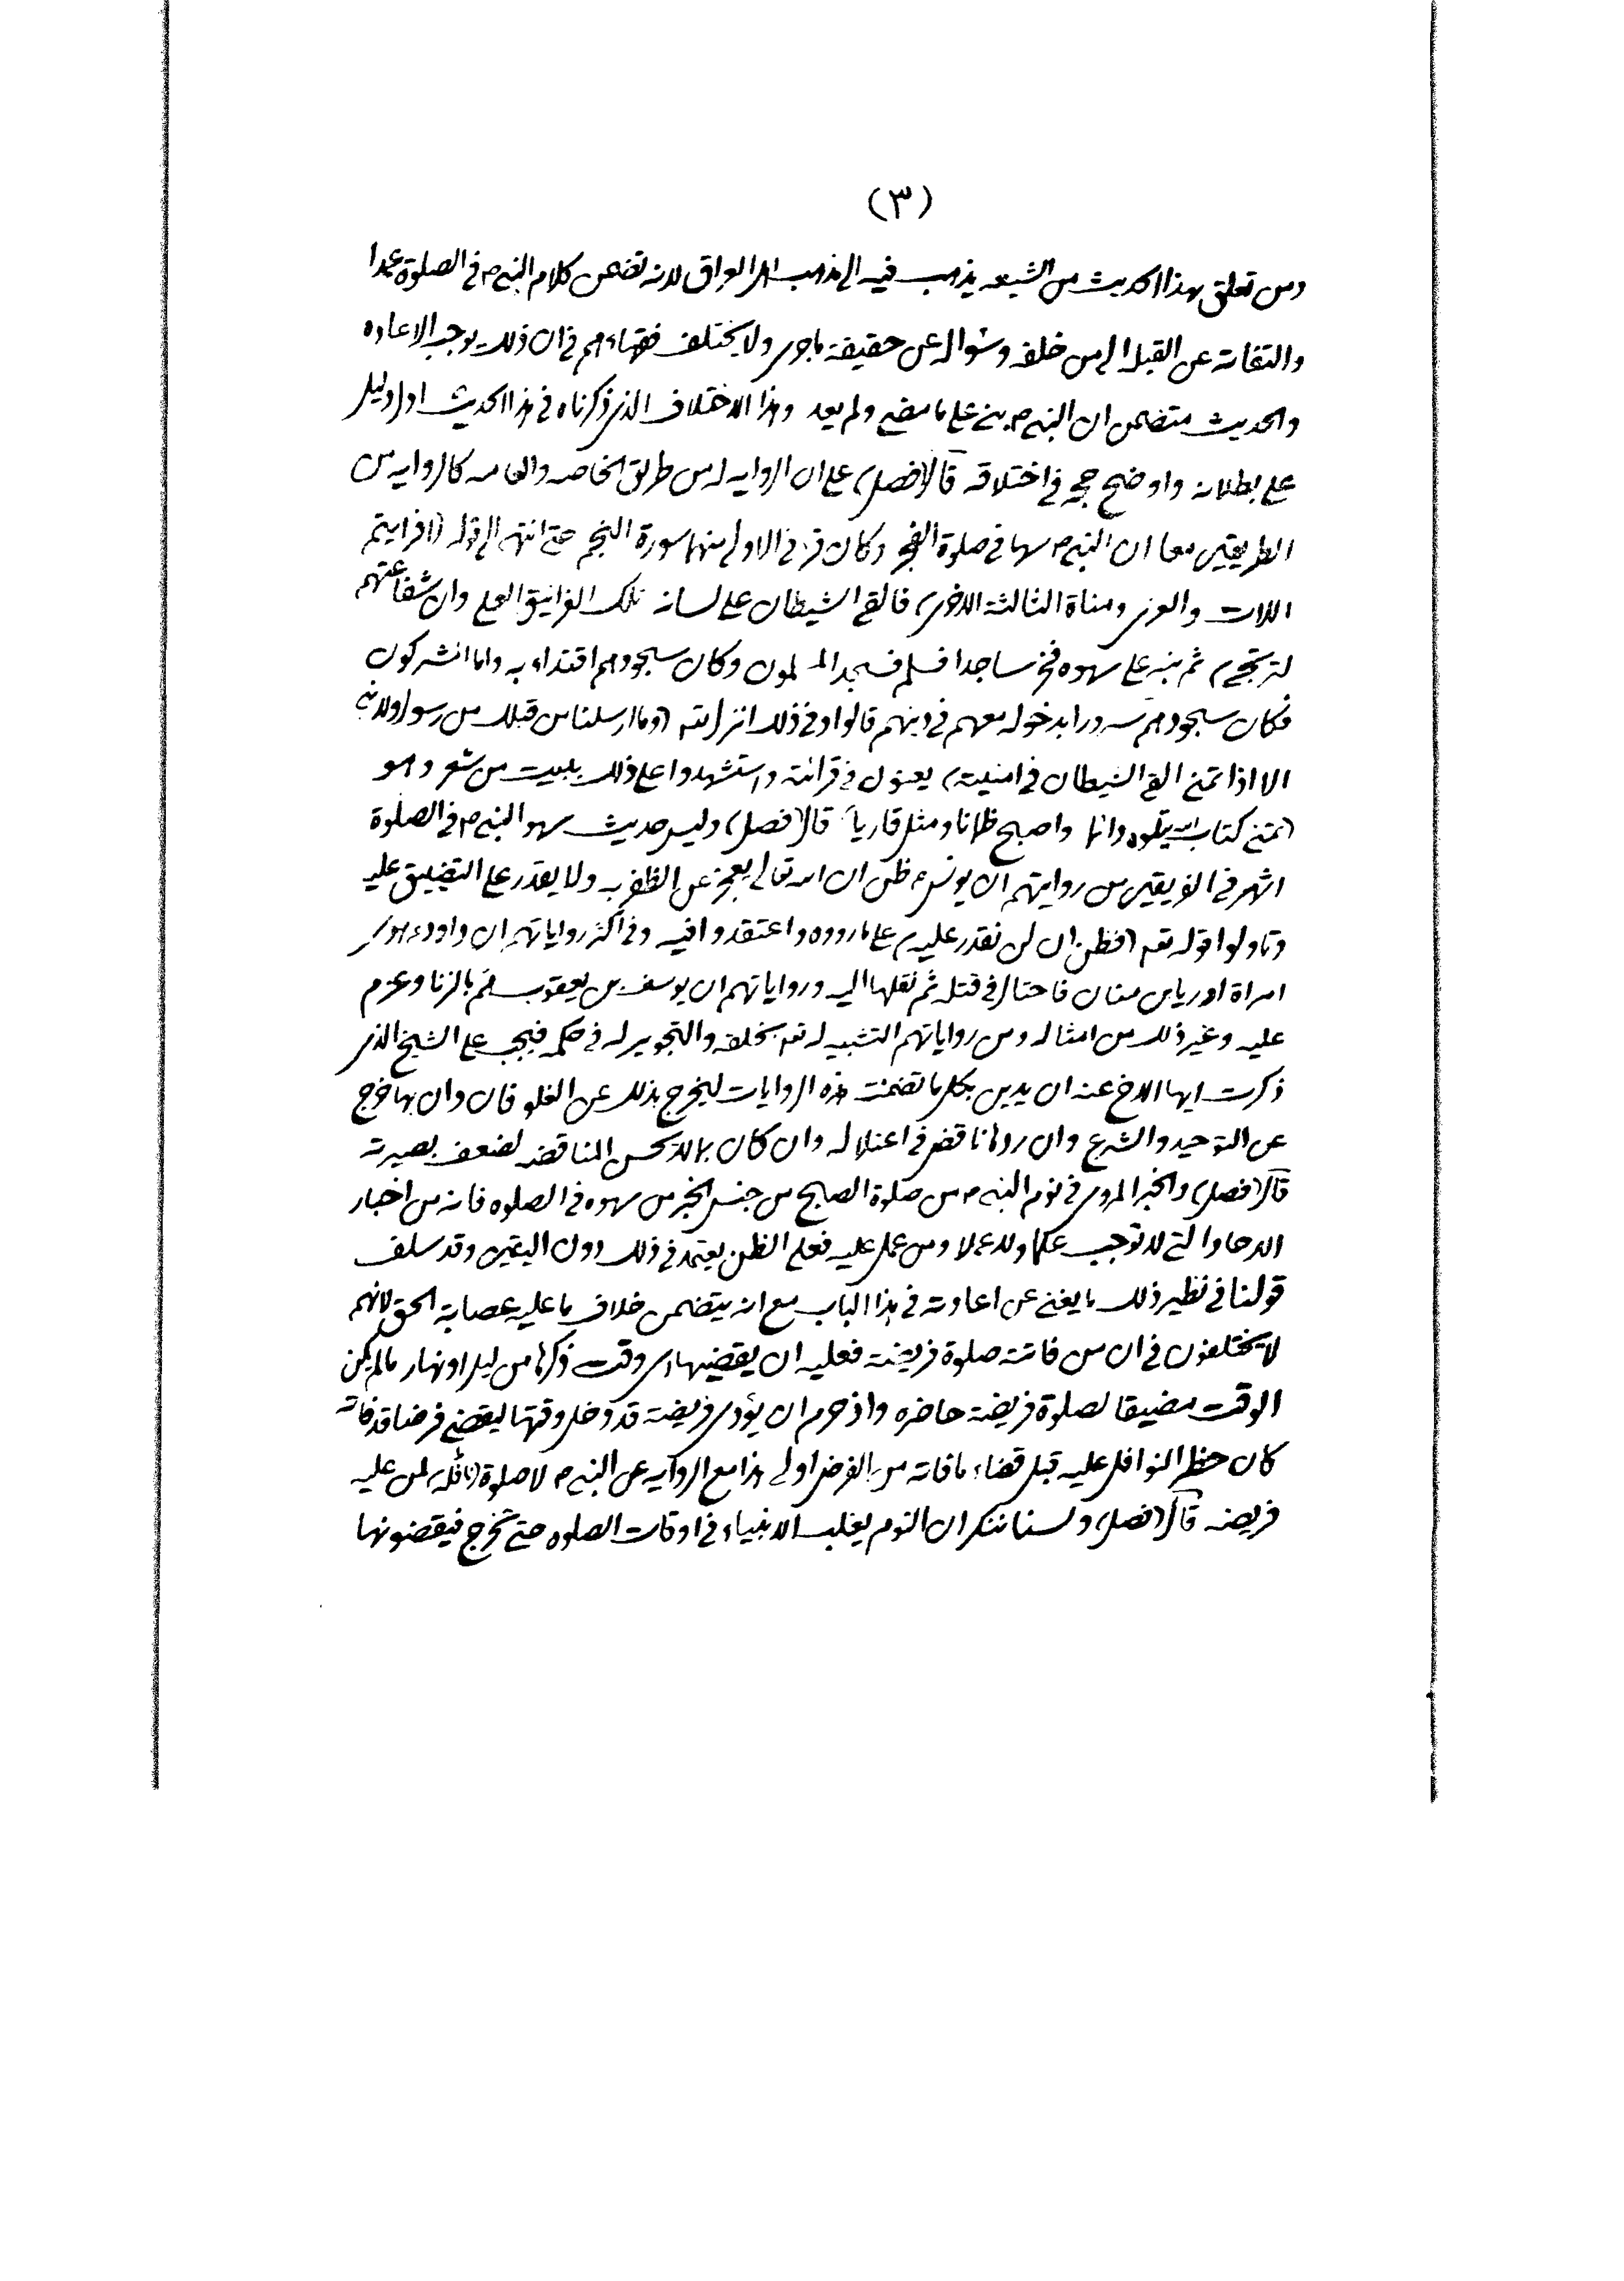 (٣)
ومن تعلق بهذا الحديث من الشيعه يذهب فيه الى مذهب اهل العراق لانه تضمن كلام النبي ص في الصلوة عمدا
والتفاته عن القبلة الى من خلفه وسؤاله عن حقيقة ماجرى ولا يختلف فقهاءهم في ان ذلك يوجب الاعاده
والحديث متضمن ان النبي ص بنى على ما مضى ولم يعد وهذا الاختلاف الذي ذكرناه في هذا الحديث ادل دليل
على بطلانه واوضح حجة في اختلاقه قال (فصل) على ان الروايه له من طريق الخاصه والعامه كالروايه من
الطريقين معا ان النبي ص سها في صلوة الفجر وكان قرء في الاولى منهما سورة النجم حتى انتهى الى قوله (افرايتم
اللات والعزى ومناة الثالثة الاخرى) فالقى الشيطان على لسانه تلك الغرانيق العلى وان شفاعتهم
لترتجى) ثم نبه على سهوه فخر ساجدا فسلم فسجد المسلمون وكان سجودهم اقتداء به واما المشركون
فكان سجودهم سرورا بدخوله معهم في دينهم قالوا وفي ذلك انزل الله (وما ارسلنا من قبلك من رسول ولا نبي
الا اذا تمنى القى الشيطان في امنيته) يعنون في قرائته واستشهدوا على ذلك ببيت من شعر وهو
(تمنى كتاب الله يتلوه دائما واصبح ظمانا ومثل قاريا) قال (فصل) وليس حديث سهو النبي ص في الصلوة
اشهر في الفريقين من روايتهم ان يونس ع ظن ان الله تعالى يعجز عن الظفر به ولا يقدر على التضييق عليه
وتاولوا قوله تعه (فظن ان لن نقدر عليه) على ما رووه واعتقدوا فيه وفي اكثر رواياتهم ان داود ع هوى
امراة اوريا بن حنان فاحتال في قتله ثم نقلها اليه ورواياتهم ان يوسف بن يعقوب هم بالزنا وعزم
عليه وغير ذلك من امثاله ومن رواياتهم التشبيه له تعه بخلقه والتجوير له في حكمه فيجب على الشيخ الذي
ذكرت ايها الاخ عنه ان يدين بكل ما تضمنت هذه الروايات ليخرج بذلك عن الغلو فان دان بها خرج
عن التوحيد والشرع وان ردها ناقض في اعتلاله وان كان ممن لا يحسن المناقضه لضعف بصيرته
قال (فصل) والخبر المروي في نوم النبي ص من صلوة الصبح من جنس الخبر من سهوه في الصلوه فانه من اخبار
الاحاد التي لا توجب علما ولا عملا ومن عمل عليه فعلى الظن يعتمد في ذلك دون اليقين وقد سلف
قولنا في نظير ذلك ما يغني عن اعادته في هذا الباب مع انه يتضمن خلاف ما عليه عصابة الحق لانهم
لا يختلفون في ان من فاتته صلوة فريضة فعليه ان يقضيها اي وقت ذكرها من ليل او نهار ما لم يكن
الوقت مضيقا لصلوة فريضة حاضره واذ حرم ان يؤدى فريضة قد دخل وقتها ليقضي فرضا قد فاته
كان حظر النوافل عليه قبل قضاء ما فاته من الفرض اولى هذا مع الروايه عن النبي ص لا صلوة (نافلة) لمن عليه
فريضه قال (فصل) ولسنا ننكر ان النوم يغلب الانبياء في اوقات الصلوه حتى تخرج فيقضونها